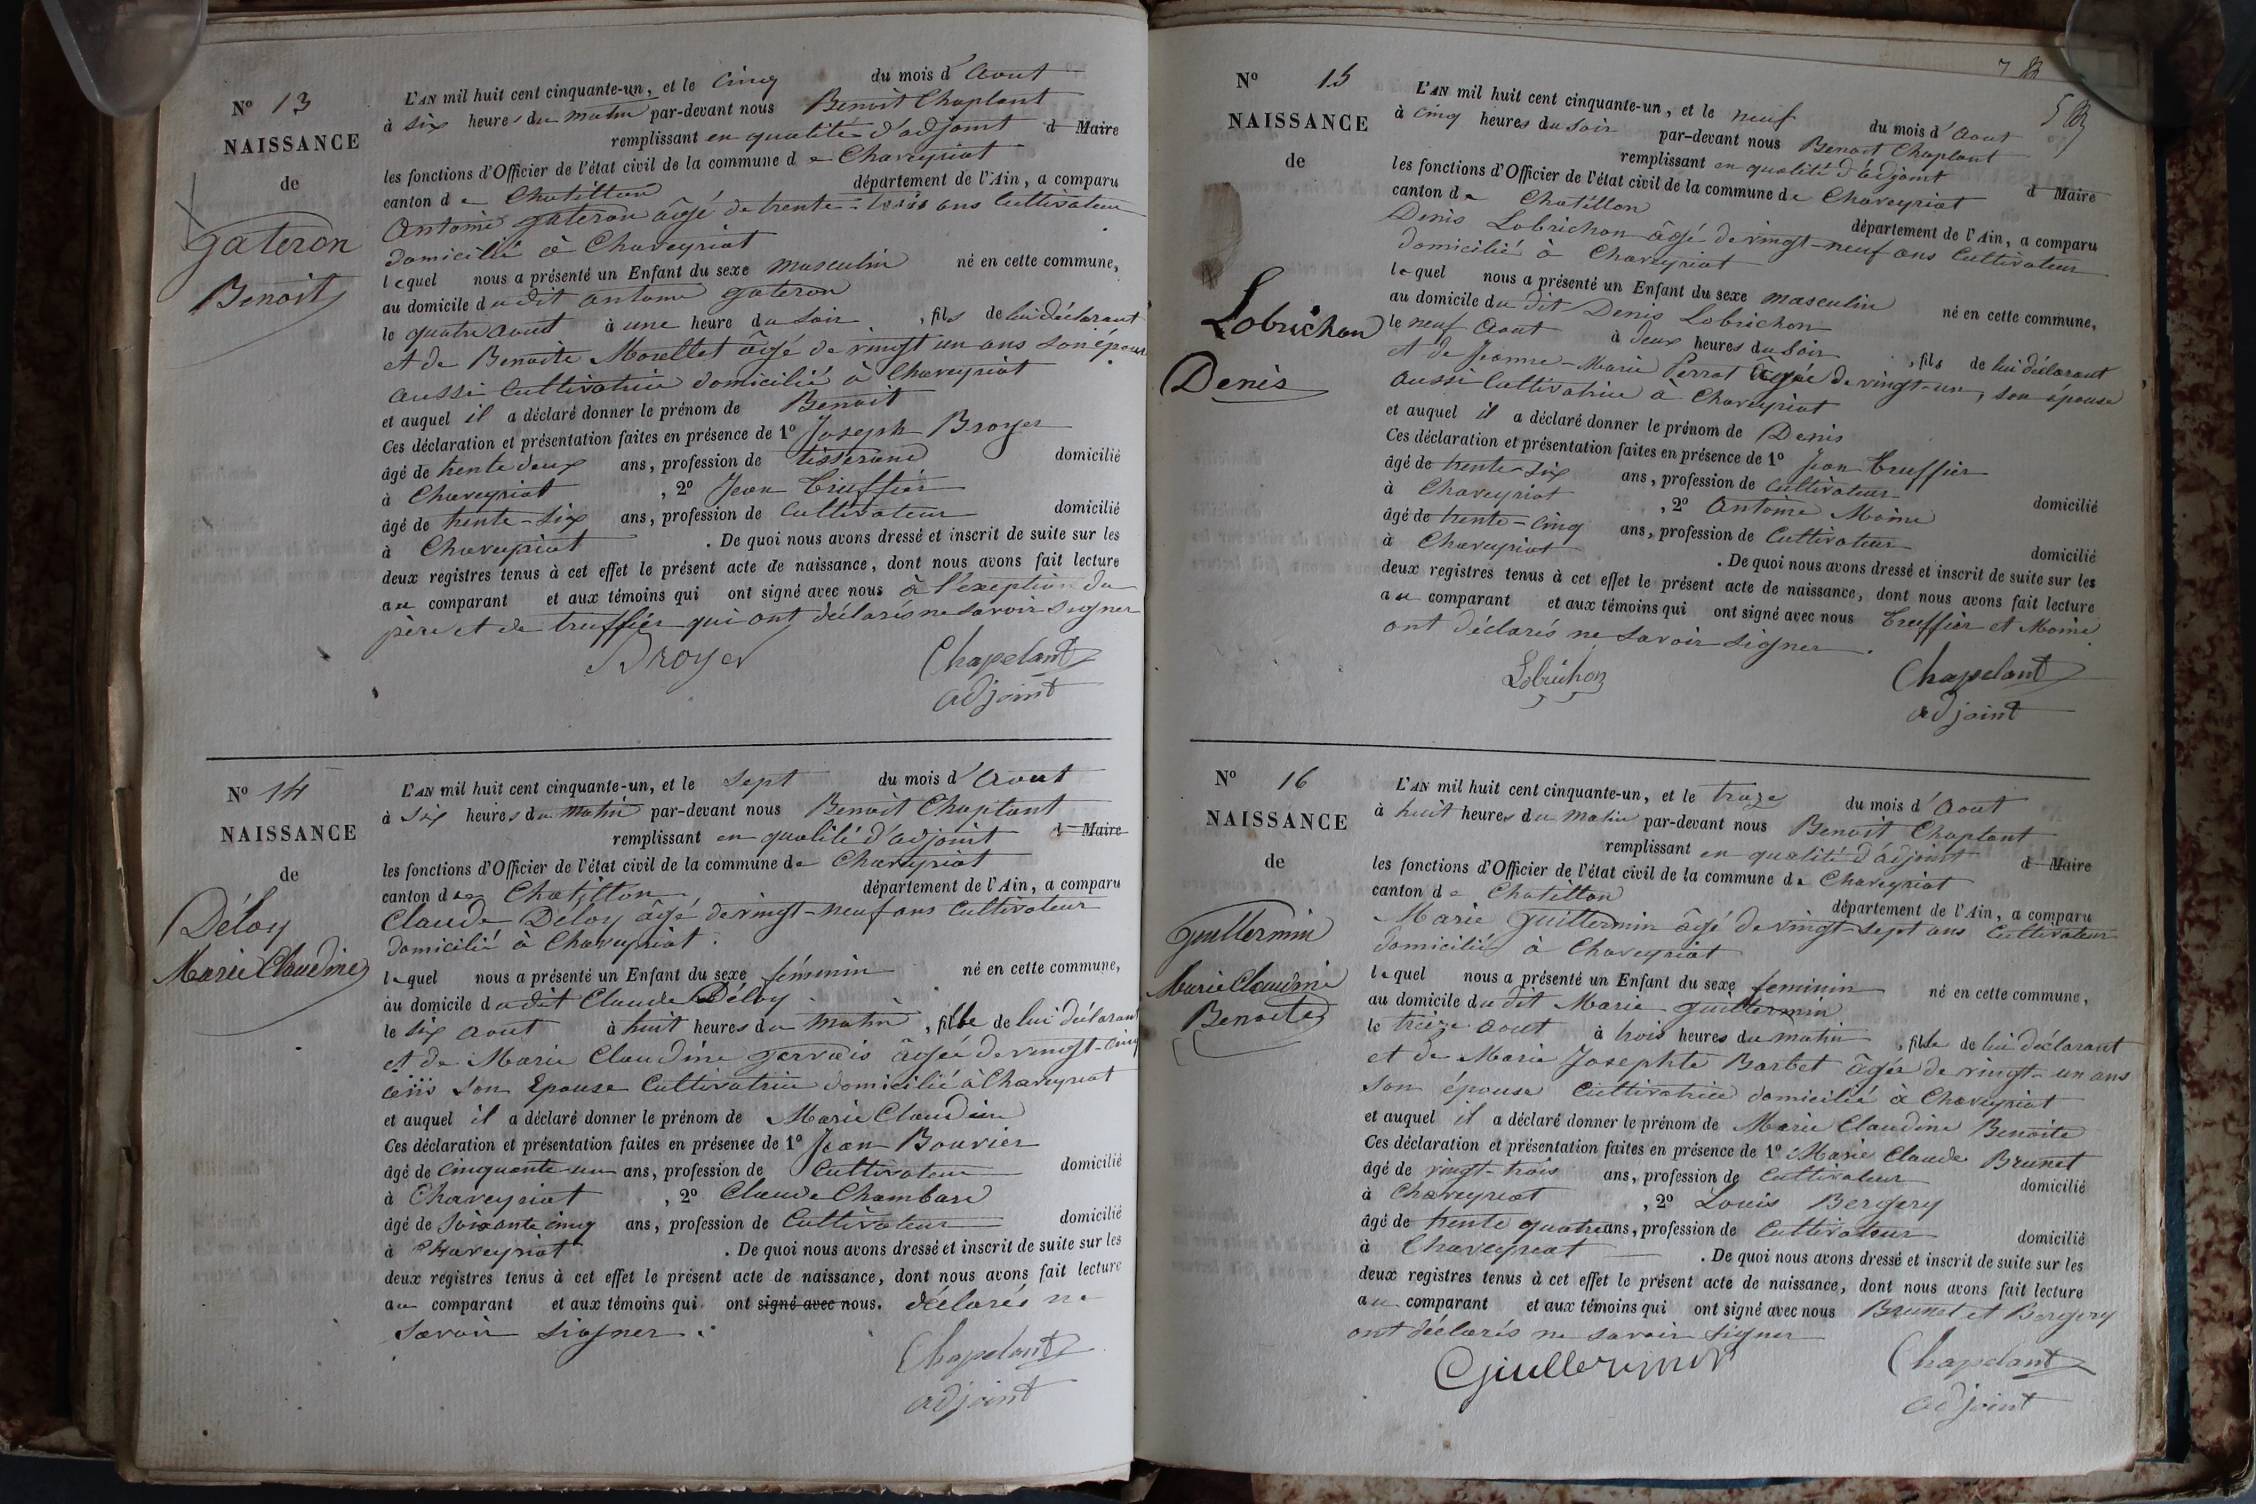 N° 13
NAISSANCE
de
Gateron
Benoit
L'AN mil huit cent cinquante-un, et le cinq du mois d'Aout
à six heures du matin par-devant nous Benoit Chaplant
remplissant en qualité d'adjoint d Maire
les fonctions d'Officier de l'état civil de la commune de Chaveyriat
canton de Chatillon département de l'Ain, a comparu
Antoine Gateron âgé de trente-trois ans Cultivateur
domicilié à Chaveyriat
lequel nous a présenté un Enfant du sexe masculin né en cette commune,
au domicile dudit Antoine Gateron
le quatre Aout à une heure du soir, fils de lui déclarant
et de Benoite Morellet âgé de vingt un ans son épouse
aussi Cultivatrice domicilié à Chaveyriat
et auquel il a déclaré donner le prénom de Benoit
Ces déclaration et présentation faites en présence de 1° Joseph Broyer
âgé de trente deux ans, profession de tisserand domicilié
à Chaveyriat, 2° Jean Truffier
âgé de trente-six ans, profession de Cultivateur domicilié
à Chaveyriat. De quoi nous avons dressé et inscrit de suite sur les
deux registres tenus à cet effet le présent acte de naissance, dont nous avons fait lecture
au comparant et aux témoins qui ont signé avec nous à l'exeption du
père et de truffier qui ont déclarés ne savoir signer
Broyer Chapelant
adjoint
N° 14
NAISSANCE
de
Déloy
Marie Claudine
L'AN mil huit cent cinquante-un, et le sept du mois d'Aout
à six heures du matin par-devant nous Benoit Chaplant
remplissant en qualité d'adjoint d Maire
les fonctions d'Officier de l'état civil de la commune de Chaveyriat
canton de Chatillon département de l'Ain, a comparu
Claude Déloy âgé de vingt-neuf ans Cultivateur
domicilié à Chaveyriat.
lequel nous a présenté un Enfant du sexe féminin né en cette commune,
au domicile dudit Claude Déloy
le six Aout à huit heures du matin, fille de lui déclarant
et de Marie Claudine Gervais âgée de vingt-cinq
ans son Epouse Cultivatrice domicilié à Chaveyriat
et auquel il a déclaré donner le prénom de Marie Claudine
Ces déclaration et présentation faites en présence de 1° Jean Bouvier
âgé de cinquante un ans, profession de Cultivateur domicilié
à Chaveyriat, 2° Claude Chambard
âgé de soixante cinq ans, profession de Cultivateur domicilié
à Chaveyriat. De quoi nous avons dressé et inscrit de suite sur les
deux registres tenus à cet effet le présent acte de naissance, dont nous avons fait lecture
au comparant et aux témoins qui ont signé avec nous. déclarés ne
savoir signer.
Chapelant
adjoint
N° 15
NAISSANCE
de
Lobrichon
Denis
L'AN mil huit cent cinquante-un, et le neuf du mois d'Aout
à cinq heures du soir par-devant nous Benoit Chaplant
remplissant en qualité d'adjoint d Maire
les fonctions d'Officier de l'état civil de la commune de Chaveyriat
canton de Chatillon département de l'Ain, a comparu
Denis Lobrichon âgé de vingt-neuf ans Cultivateur
domicilié à Chaveyriat
lequel nous a présenté un Enfant du sexe masculin né en cette commune,
au domicile du dit Denis Lobrichon
le neuf Aout à deux heures du soir, fils de lui déclarant
et de Jeanne-Marie Perrat âgée de vingt-un, son épouse
aussi Cultivatrice à Chaveyriat
et auquel il a déclaré donner le prénom de Denis
Ces déclaration et présentation faites en présence de 1° Jean Truffier
âgé de trente-six ans, profession de Cultivateur domicilié
à Chaveyriat, 2° Antoine Moine
âgé de trente-cinq ans, profession de Cultivateur domicilié
à Chaveyriat. De quoi nous avons dressé et inscrit de suite sur les
deux registres tenus à cet effet le présent acte de naissance, dont nous avons fait lecture
au comparant et aux témoins qui ont signé avec nous Truffier et Moine
ont déclarés ne savoir signer.
Lobrichon Chapelant
adjoint
N° 16
NAISSANCE
de
Guillermin
Marie Claudine
Benoite
L'AN mil huit cent cinquante-un, et le treize du mois d'Aout
à huit heures du matin par-devant nous Benoit Chaplant
remplissant en qualité d'adjoint d Maire
les fonctions d'Officier de l'état civil de la commune de Chaveyriat
canton de Chatillon département de l'Ain, a comparu
Marie Guillermin âgé de vingt-sept ans Cultivateur
domicilié à Chaveyriat
lequel nous a présenté un Enfant du sexe feminin né en cette commune,
au domicile du dit Marie Guillermin
le treize Aout à trois heures du matin, fille de lui déclarant
et de Marie Josephte Barbet âgée de vingt-un ans
son épouse Cultivatrice domicilié à Chaveyriat
et auquel il a déclaré donner le prénom de Marie Claudine Benoite
Ces déclaration et présentation faites en présence de 1° Marie Claude Brunet
âgé de vingt-trois ans, profession de Cultivateur domicilié
à Chaveyriat, 2° Louis Bergery
âgé de trente quatre ans, profession de Cultivateur domicilié
à Chaveyriat. De quoi nous avons dressé et inscrit de suite sur les
deux registres tenus à cet effet le présent acte de naissance, dont nous avons fait lecture
au comparant et aux témoins qui ont signé avec nous Brunet et Bergery
ont déclarés ne savoir signer
Guillermin Chapelant
adjoint